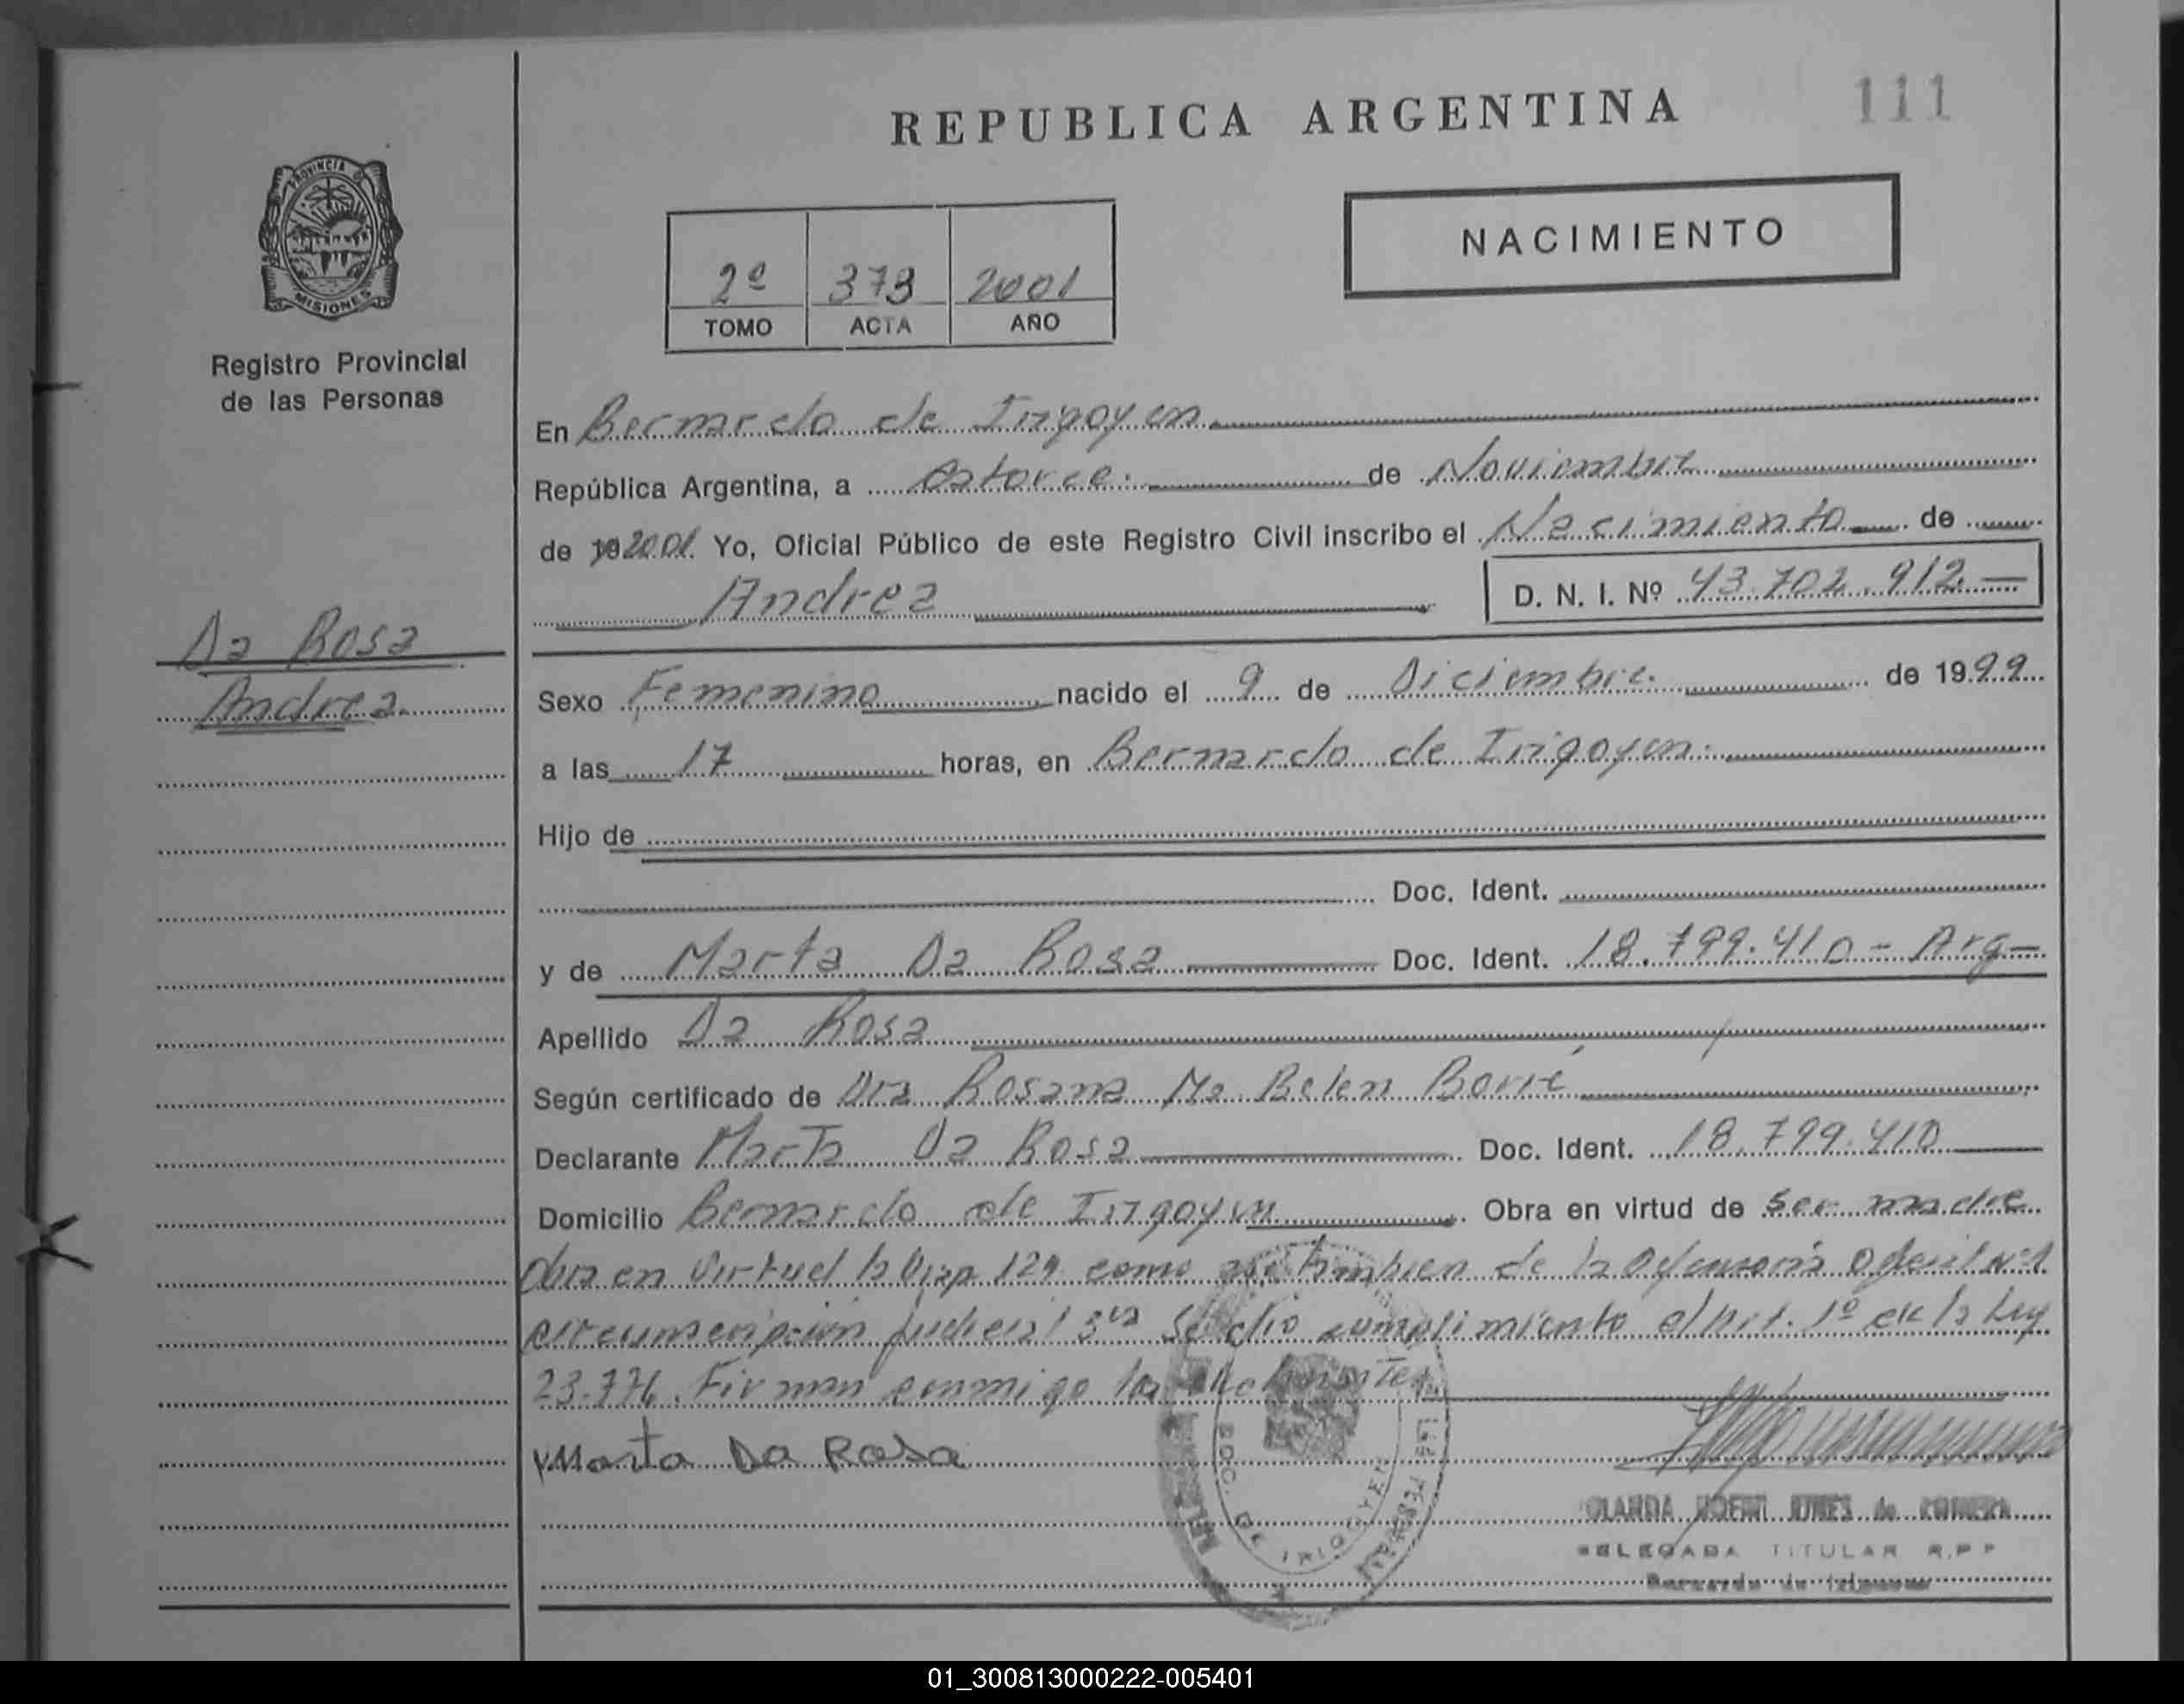 REPUBLICA ARGENTINA
111
PROVINCIA DE
MISIONES
Registro Provincial
de las Personas
2º 373 2001
TOMO ACTA AÑO
NACIMIENTO
En Bernardo de Irigoyen
República Argentina, a Catorce de Noviembre
de 19 2001 Yo, Oficial Público de este Registro Civil inscribo el Nacimiento de
Andrea D. N. I. Nº 43.702.912.
Da Rosa
Andrea
Sexo Femenino nacido el 9 de Diciembre de 1999
a las 17 horas, en Bernardo de Irigoyen
Hijo de
Doc. Ident.
y de Marta Da Rosa Doc. Ident. 18.799.410 - Arg
Apellido Da Rosa
Según certificado de Dra Rosana Ma Belen Borré
Declarante Marta Da Rosa Doc. Ident. 18.799.410
Domicilio Bernardo de Irigoyen Obra en virtud de ser madre
Obra en Virtud la Disp 129 como así tambien de la Defensoria Oficial Nº1
circunscripción judicial 3ra Se dio cumplimiento al Art. 1º de la Ley
23.776. Firman conmigo
Marta Da Rosa
DELEGADA TITULAR R.P.P
Bernardo de Irigoyen
01_300813000222-005401